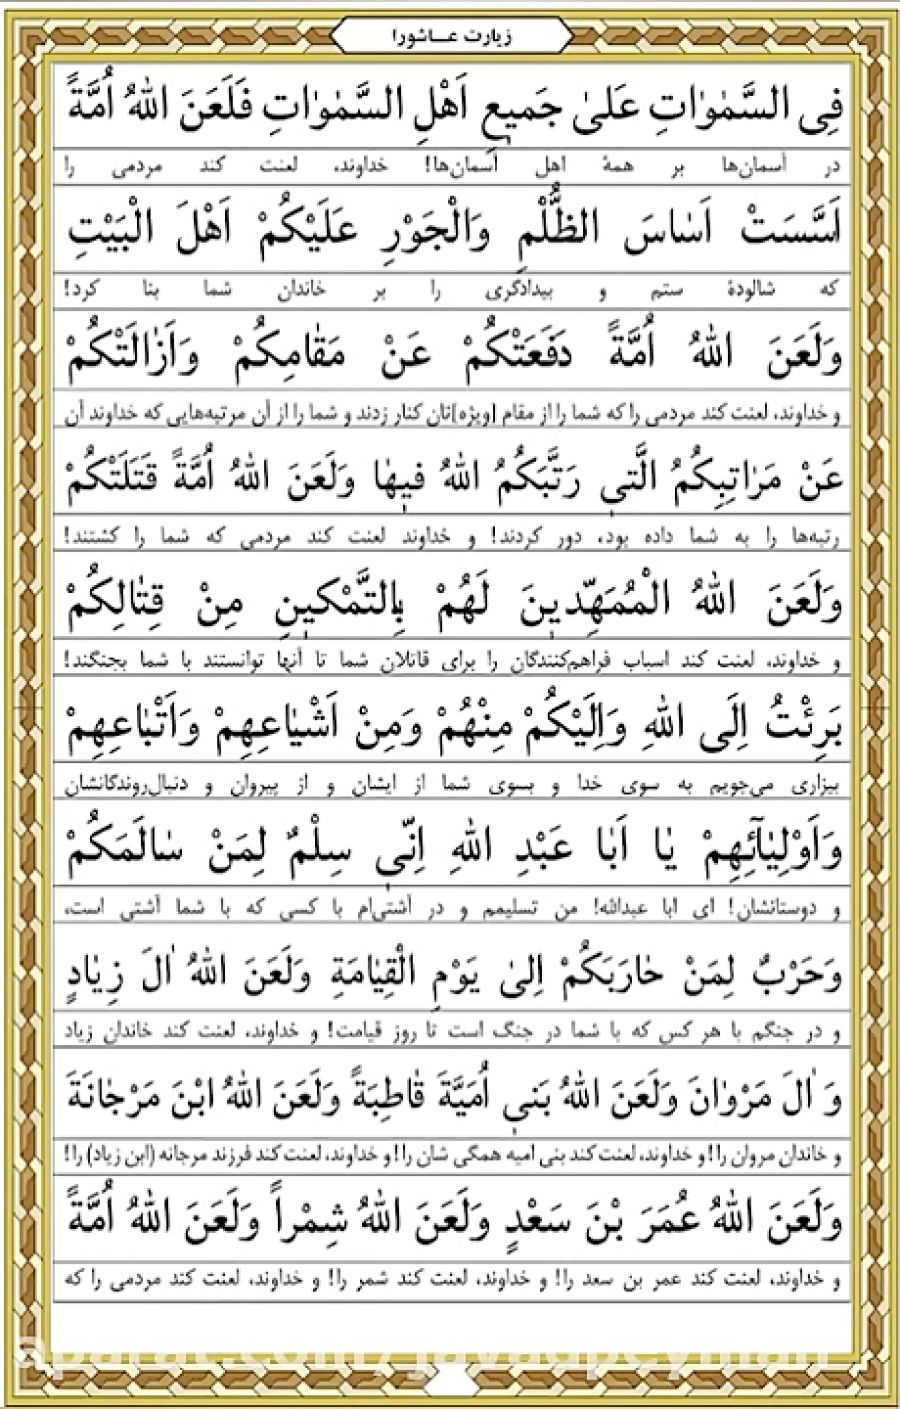 زیارت عـاشورا
فِی السَّمٰوٰاتِ عَلیٰ جَمیعِ اَهْلِ السَّمٰوٰاتِ فَلَعَنَ اللهُ اُمَّةً
در آسمان‌ها بر همهٔ اهل آسمان‌ها! خداوند، لعنت کند مردمی را
اَسَّسَتْ اَسٰاسَ الظُّلْمِ وَالْجَوْرِ عَلَیْکُمْ اَهْلَ الْبَیْتِ
که شالودهٔ ستم و بیدادگری را بر خاندان شما بنا کرد!
وَلَعَنَ اللهُ اُمَّةً دَفَعَتْکُمْ عَنْ مَقٰامِکُمْ وَاَزٰالَتْکُمْ
و خداوند، لعنت کند مردمی را که شما را از مقام [ویژه]تان کنار زدند و شما را از آن مرتبه‌هایی که خداوند آن
عَنْ مَرٰاتِبِکُمُ الَّتی رَتَّبَکُمُ اللهُ فیهٰا وَلَعَنَ اللهُ اُمَّةً قَتَلَتْکُمْ
رتبه‌ها را به شما داده بود، دور کردند! و خداوند لعنت کند مردمی که شما را کشتند!
وَلَعَنَ اللهُ الْمُمَهِّدینَ لَهُمْ بِالتَّمْکینِ مِنْ قِتٰالِکُمْ
و خداوند، لعنت کند اسباب فراهم‌کنندگان را برای قاتلان شما تا آنها توانستند با شما بجنگند!
بَرِئْتُ اِلَی اللهِ وَاِلَیْکُمْ مِنْهُمْ وَمِنْ اَشْیٰاعِهِمْ وَاَتْبٰاعِهِمْ
بیزاری می‌جویم به سوی خدا و بسوی شما از ایشان و از پیروان و دنبال‌روندگانشان
وَاَوْلِیٰآئِهِمْ یٰا اَبٰا عَبْدِ اللهِ اِنّی سِلْمٌ لِمَنْ سٰالَمَکُمْ
و دوستانشان! ای ابا عبدالله! من تسلیمم و در آشتی‌ام با کسی که با شما آشتی است،
وَحَرْبٌ لِمَنْ حٰارَبَکُمْ اِلیٰ یَوْمِ الْقِیٰامَةِ وَلَعَنَ اللهُ اٰلَ زِیٰادٍ
و در جنگم با هر کس که با شما در جنگ است تا روز قیامت! و خداوند، لعنت کند خاندان زیاد
وَ اٰلَ مَرْوٰانَ وَلَعَنَ اللهُ بَنی اُمَیَّةَ قٰاطِبَةً وَلَعَنَ اللهُ ابْنَ مَرْجٰانَةَ
و خاندان مروان را! و خداوند، لعنت کند بنی امیه همگی شان را! و خداوند، لعنت کند فرزند مرجانه (ابن زیاد) را!
وَلَعَنَ اللهُ عُمَرَ بْنَ سَعْدٍ وَلَعَنَ اللهُ شِمْراً وَلَعَنَ اللهُ اُمَّةً
و خداوند، لعنت کند عمر بن سعد را! و خداوند، لعنت کند شمر را! و خداوند، لعنت کند مردمی را که